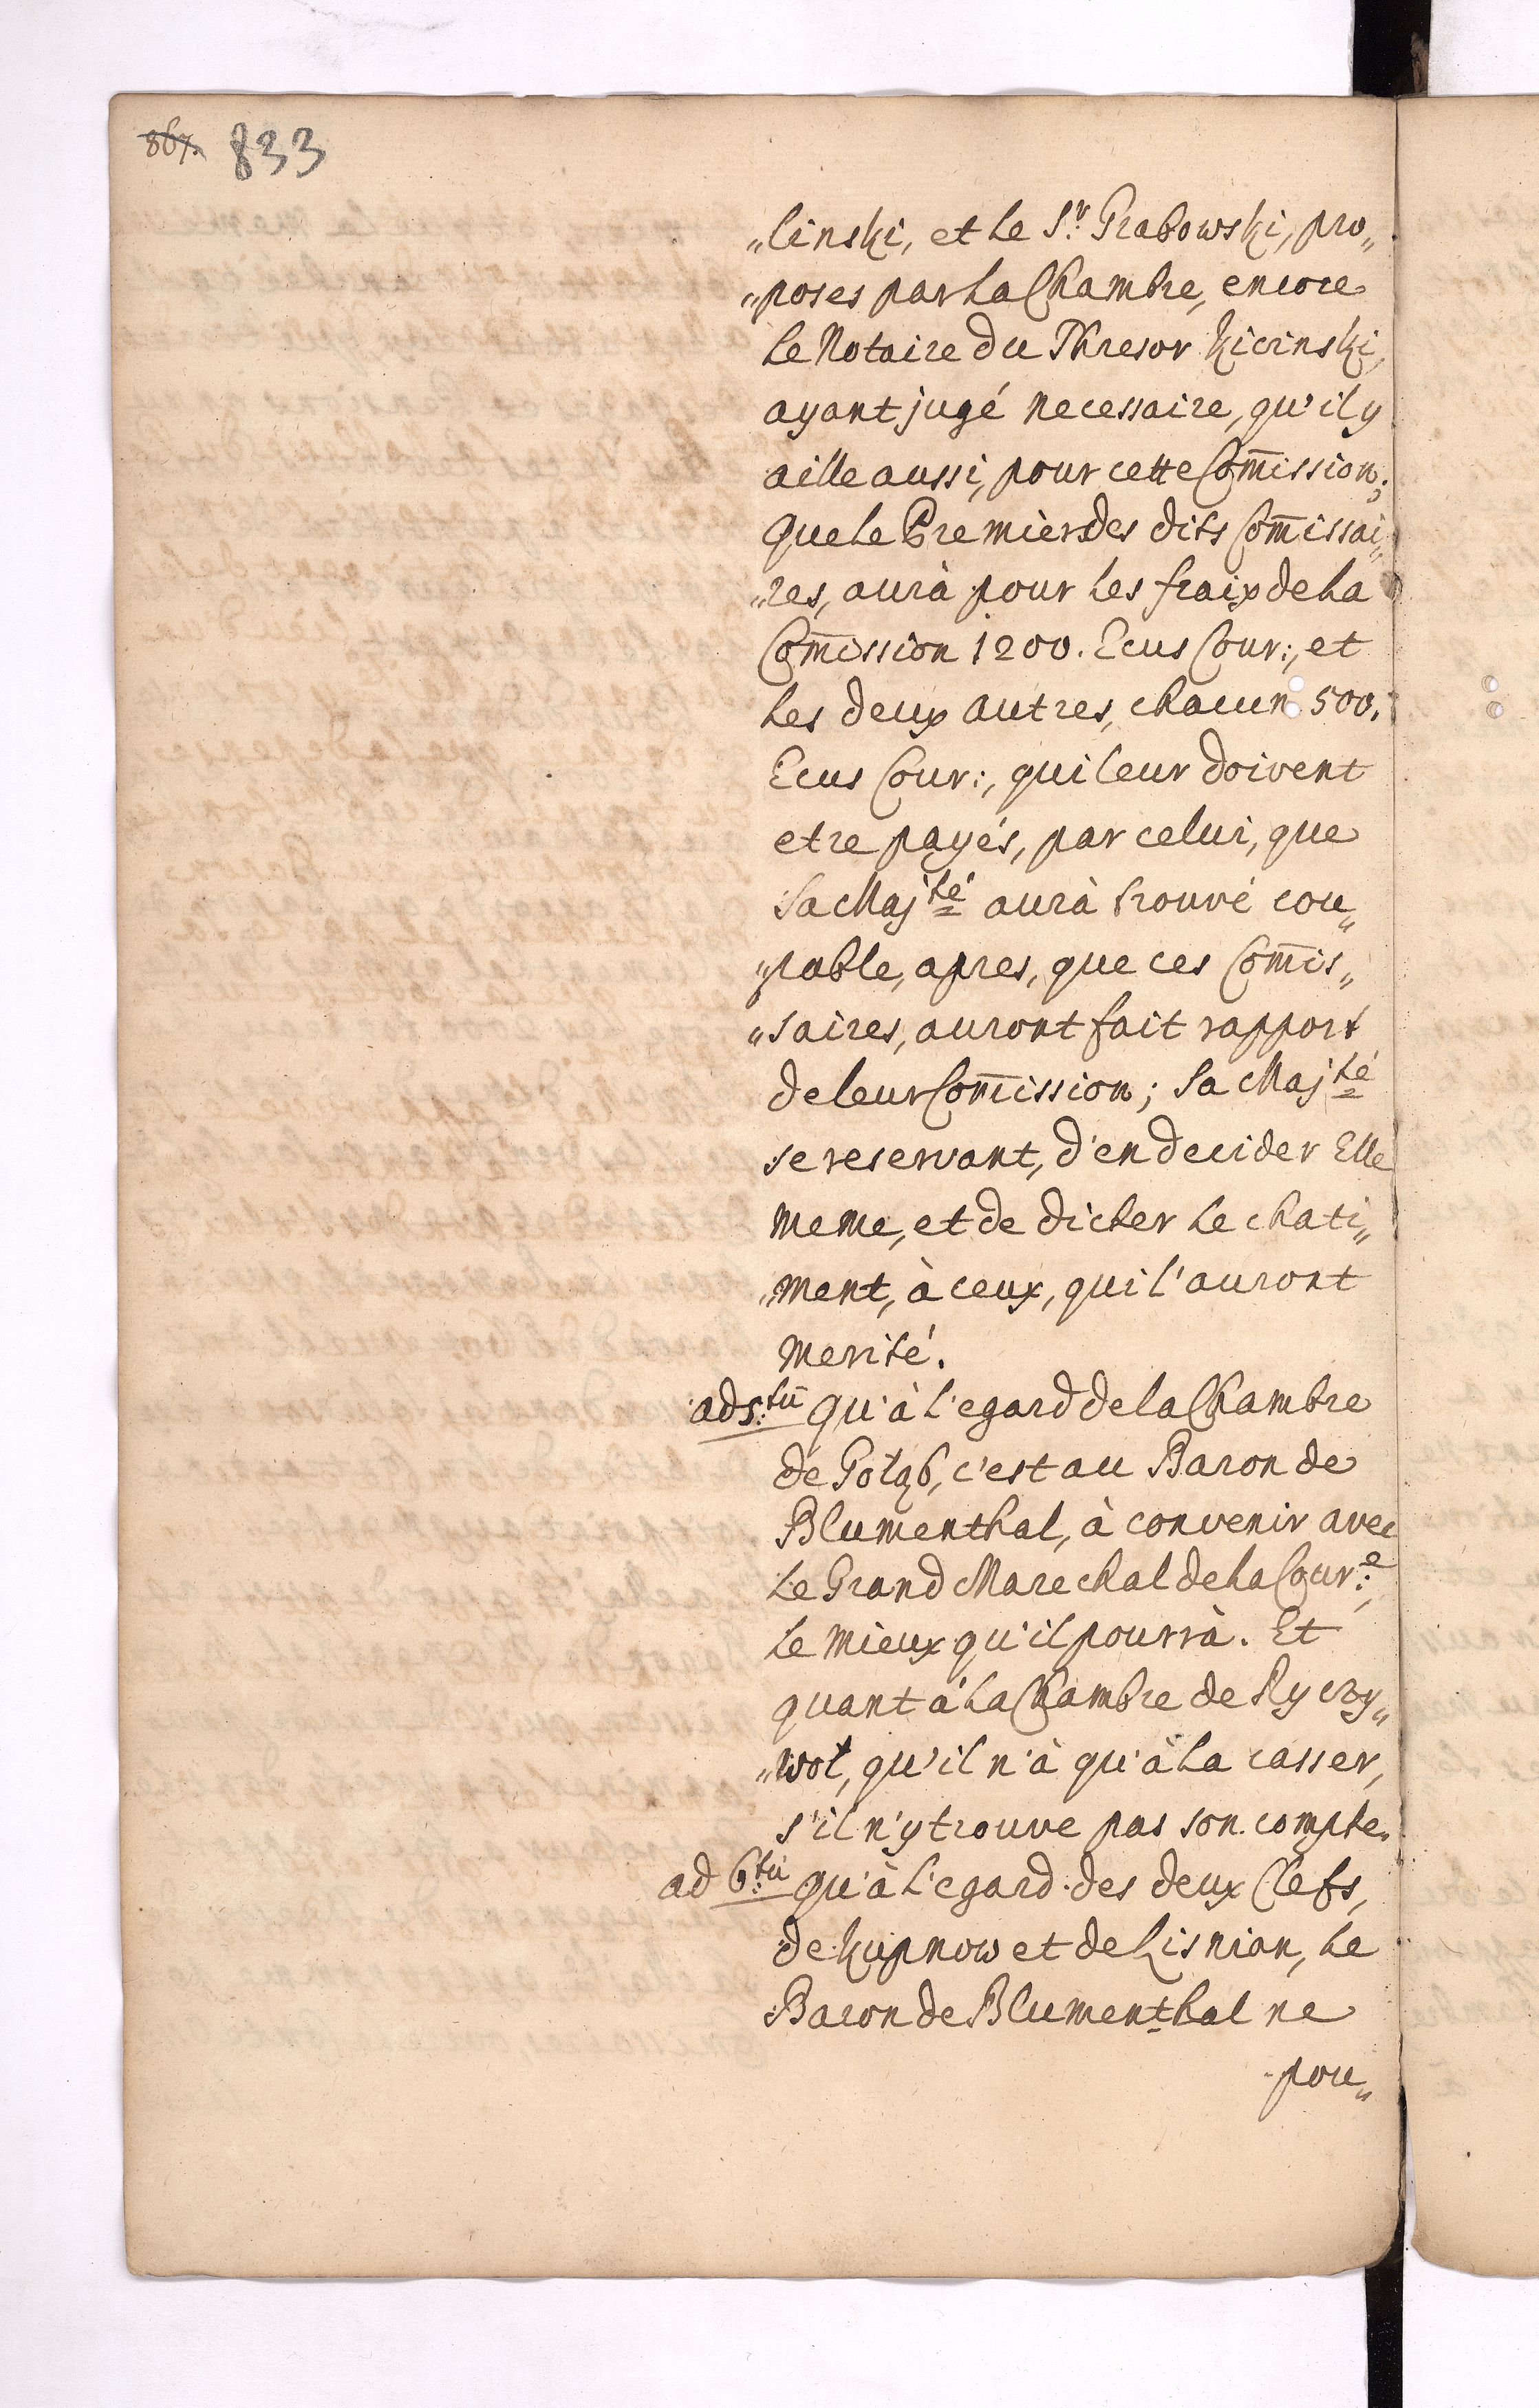 867. 833
„linski, et le S.r Grabowski, pro„
„poses par la Chambre, encore
le Notaire du Thresor Kicinski,
ayant jugé necessaire, qu'il y
aille aussi, pour cette Com̄ission;
que le Premier des dits Com̄issai„
„res, aurà pour les fraix de la
Com̄ission 1200. Ecus Cour:, et
les deux autres, chacun 500.
Ecus Cour:, qui leur doivent
etre payés, par celui, que
Sa Maj.té aurà trouvé cou„
„pable, apres, que ces Com̄is„
„saires, auront fait rapport
de leur Com̄ission; Sa Maj.té
se reservant, d'en decider Elle
meme, et de dicter le chati„
„ment, à ceux, qui l'auront
merité.
ad 5:tū qu'à l'egard de la Chambre
de Gołąb, c'est au Baron de
Blumenthal, à convenir avec
le Grand Marechal de la Cour:e,
le mieux qu'il pourrà. Et
quant à la Chambre de Ryczy„
„woł, qu'il n'à qu'à la casser,
s'il n'y trouve pas son compte.
ad 6:tū qu'à l'egard des deux Clefs,
de Kupnow et de Lisnian, le
Baron de Blumenthal ne
pou„